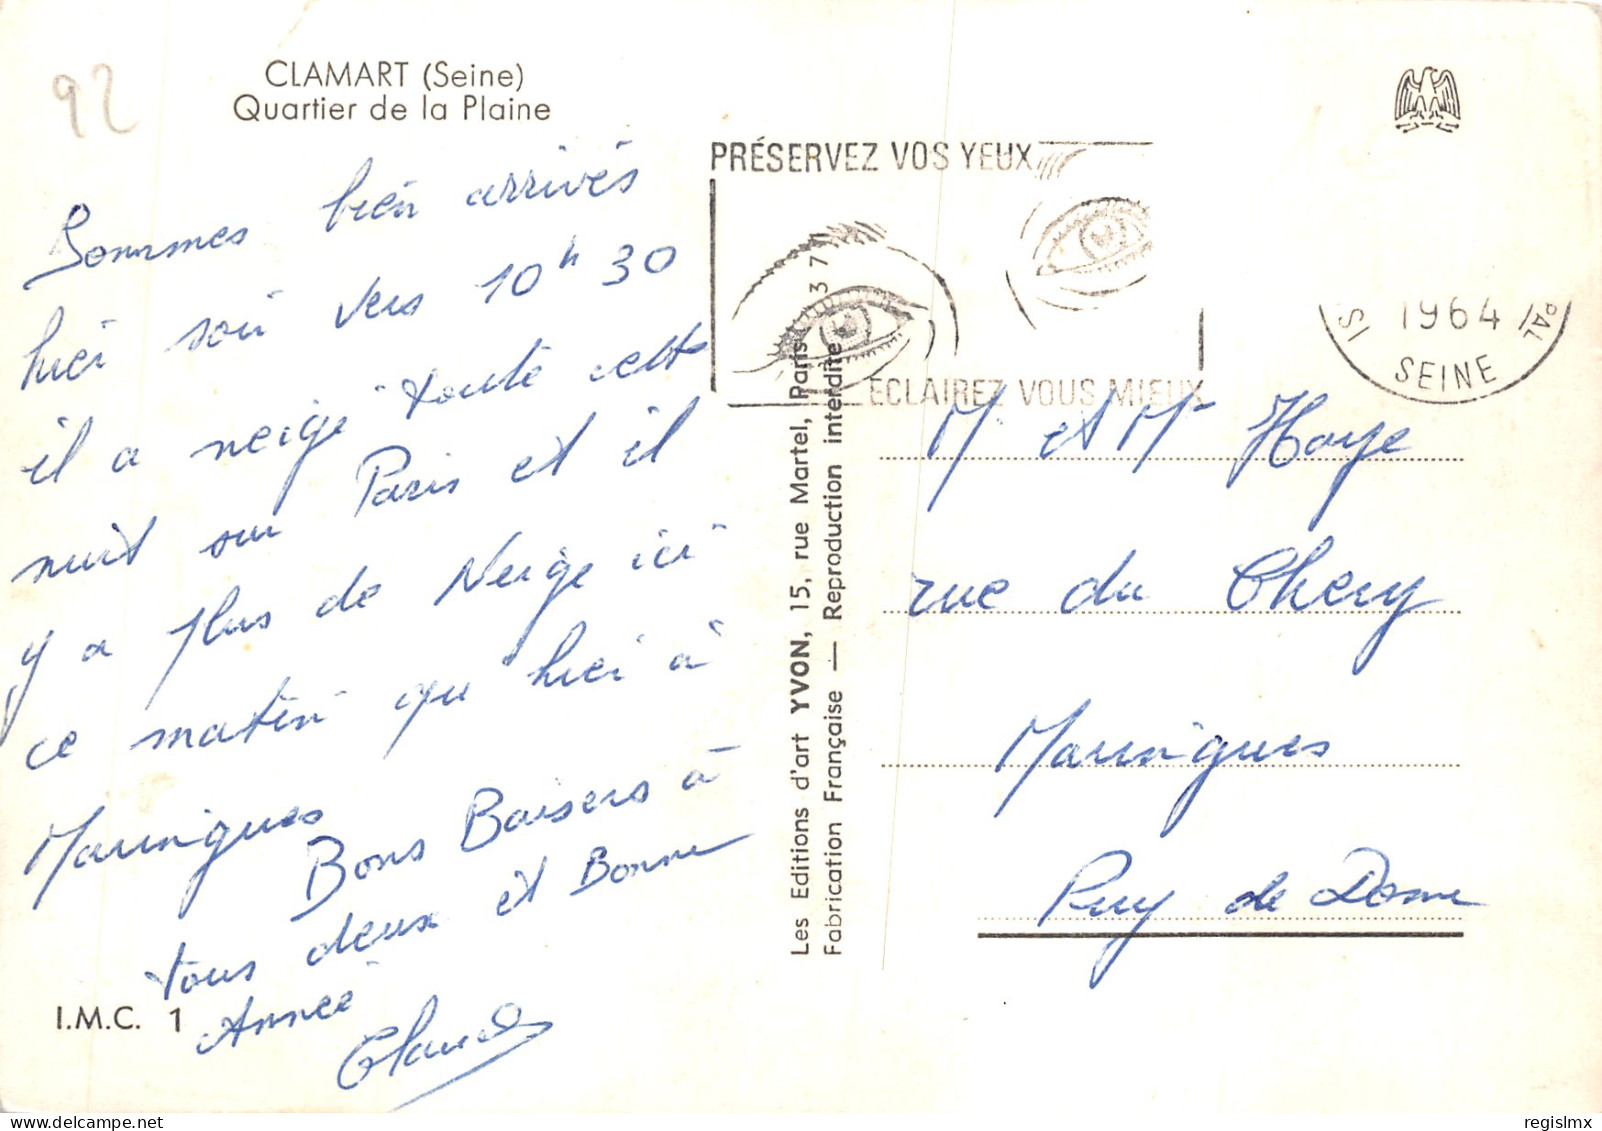 92
CLAMART (Seine)
Quartier de la Plaine
Sommes bien arrivés
hier soir vers 10h 30
il a neigé toute cette
nuit sur Paris et il
y a plus de Neige ici
ce matin que hier à
Maringues
Bons Baisers à
tous deux et Bonne
Année
Claude
I.M.C. 1
Les Editions d'art YVON, 15, rue Martel, Paris 37
Fabrication Française — Reproduction interdite
PRÉSERVEZ VOS YEUX
ECLAIREZ VOUS MIEUX
1964
SI SEINE PAL
M et Me Haye
rue du Chery
Maringues
Puy de Dome
regislmx